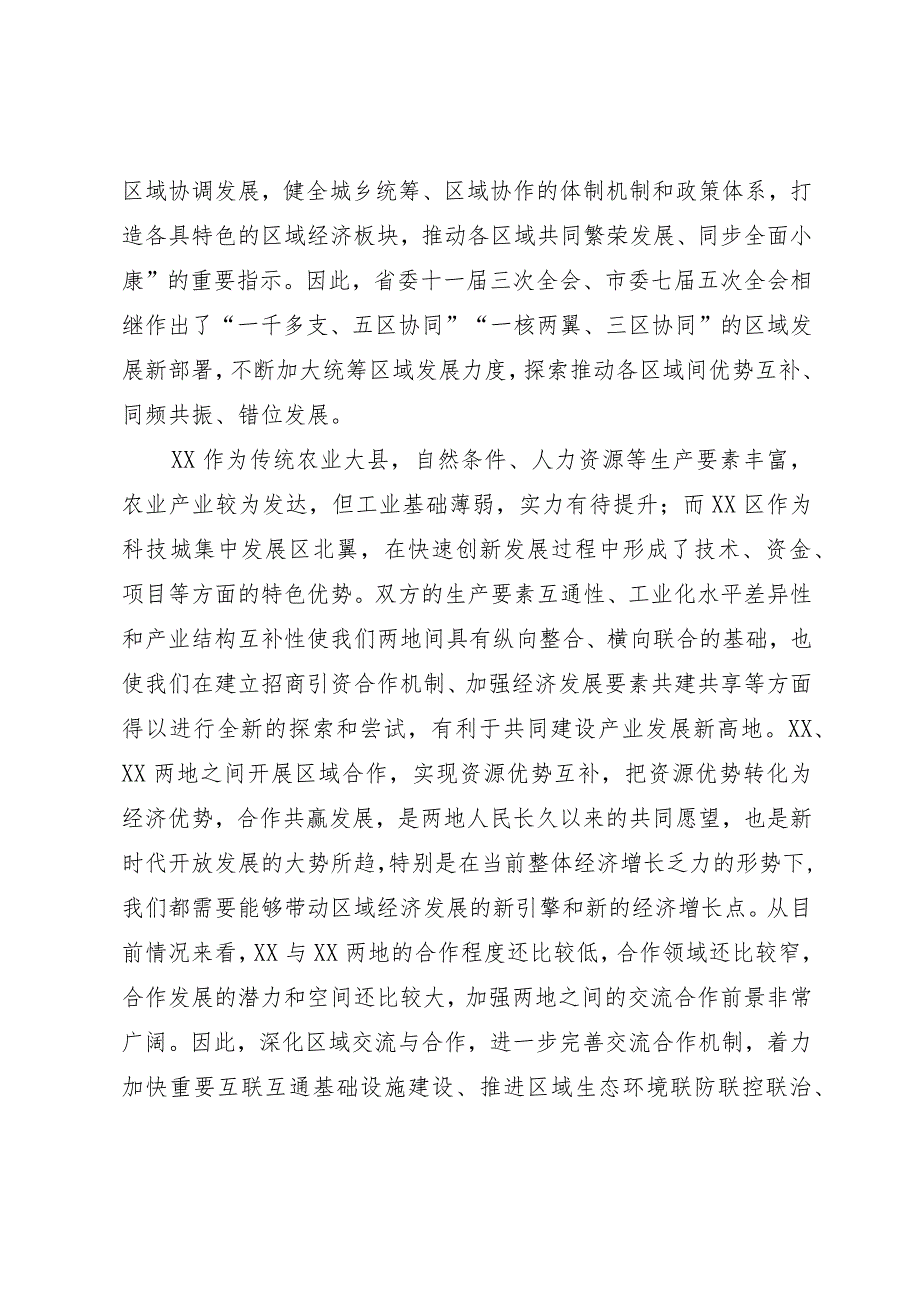 区域协调发展，健全城乡统筹、区域协作的体制机制和政策体系，打
造各具特色的区域经济板块，推动各区域共同繁荣发展、同步全面小
康”的重要指示。因此，省委十一届三次全会、市委七届五次全会相
继作出了“一千多支、五区协同”“一核两翼、三区协同”的区域发
展新部署，不断加大统筹区域发展力度，探索推动各区域间优势互补、
同频共振、错位发展。
XX 作为传统农业大县，自然条件、人力资源等生产要素丰富，
农业产业较为发达，但工业基础薄弱，实力有待提升；而 XX 区作为
科技城集中发展区北翼，在快速创新发展过程中形成了技术、资金、
项目等方面的特色优势。双方的生产要素互通性、工业化水平差异性
和产业结构互补性使我们两地间具有纵向整合、横向联合的基础，也
使我们在建立招商引资合作机制、加强经济发展要素共建共享等方面
得以进行全新的探索和尝试，有利于共同建设产业发展新高地。XX、
XX 两地之间开展区域合作，实现资源优势互补，把资源优势转化为
经济优势，合作共赢发展，是两地人民长久以来的共同愿望，也是新
时代开放发展的大势所趋，特别是在当前整体经济增长乏力的形势下，
我们都需要能够带动区域经济发展的新引擎和新的经济增长点。从目
前情况来看，XX 与 XX 两地的合作程度还比较低，合作领域还比较窄，
合作发展的潜力和空间还比较大，加强两地之间的交流合作前景非常
广阔。因此，深化区域交流与合作，进一步完善交流合作机制，着力
加快重要互联互通基础设施建设、推进区域生态环境联防联控联治、